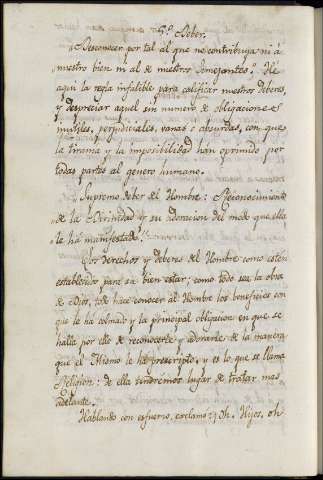 5.º Deber.
"Desconocer por tal al que no contribuya ni á
nuestro bien ni al de nuestros Semejantes". He
aqui la regla infalible para calificar nuestros deberes,
y despreciar aquel sin numero de obligaciones
inutiles, perjudiciales, vanas ó absurdas, con que
la tirania y la imposibilidad han oprimido por
todas partes al genero humano.
Supremo deber del Hombre: Reconocimiento
de la Divinidad y su adoracion del modo que ella
le há manifestado.
Los Derechos y deberes del Hombre como estén
establecidos para su bien estar; como todo sea la obra
de Dios, todo hace conocer al Hombre los beneficios con
que le há colmado y la principal obligacion en que se
halla por ello de reconocerle y adorarle de la manera
que el Mismo le há prescripto, y es lo que se llama
Religion: de ella tendremos lugar de tratar mas
adelante.
Hablando con esfuerso, exclamo: "Oh. Hijos, oh